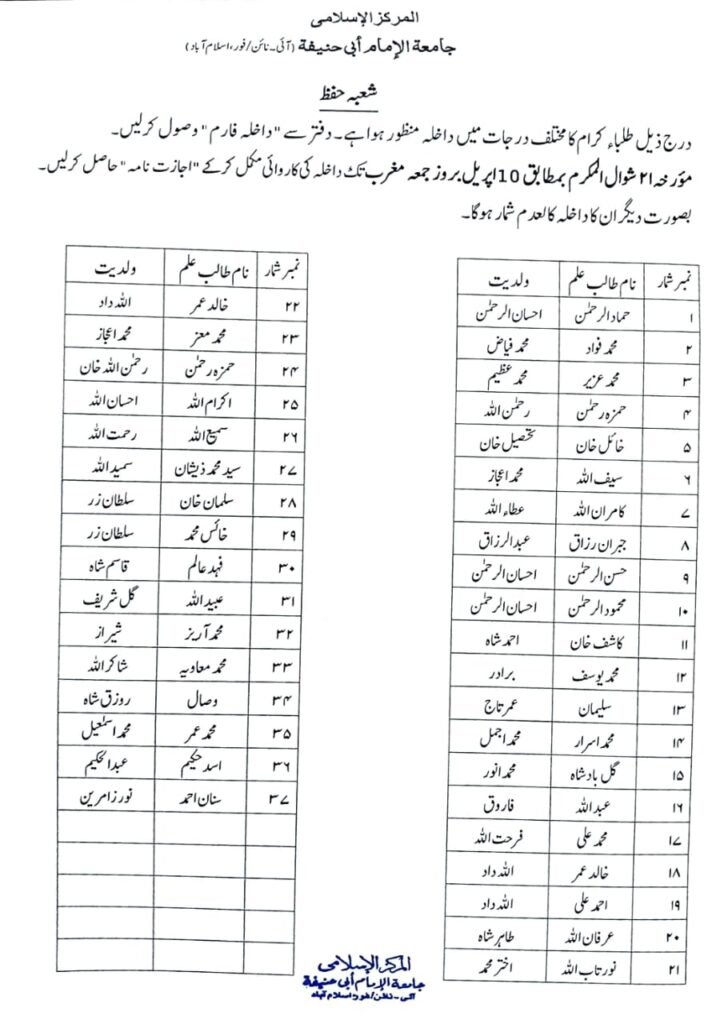 المركز الإسلامى
جامعة الإمام أبى حنيفة (آئی۔نائن/فور، اسلام آباد)
شعبہ حفظ
درج ذیل طلباء کرام کا مختلف درجات میں داخلہ منظور ہوا ہے۔ دفتر سے "داخلہ فارم" وصول کرلیں۔
مؤرخہ ۲۱ شوال المکرم بمطابق 10 اپریل بروز جمعہ مغرب تک داخلہ کی کاروائی مکمل کرکے "اجازت نامہ" حاصل کرلیں۔
بصورت دیگر ان کا داخلہ کالعدم شمار ہوگا۔
نمبر شمار نام طالب علم ولدیت
۱ حماد الرحمٰن احسان الرحمٰن
۲ محمد فواد محمد فیاض
۳ محمد عزیر محمد عظیم
۴ حمزہ رحمٰن رحمٰن اللہ
۵ خائل خان تحصیل خان
۶ سیف اللہ محمد اعجاز
۷ کامران اللہ عطاء اللہ
۸ جبران رزاق عبدالرزاق
۹ حسن الرحمٰن احسان الرحمٰن
۱۰ محمود الرحمٰن احسان الرحمٰن
۱۱ کاشف خان احمد شاہ
۱۲ محمد یوسف برادر
۱۳ سلیمان عمر تاج
۱۴ محمد اسرار محمد اجمل
۱۵ گل بادشاہ محمد انور
۱۶ عبداللہ فاروق
۱۷ محمد علی فرحت اللہ
۱۸ خالد عمر اللہ داد
۱۹ احمد علی اللہ داد
۲۰ عرفان اللہ طاہر شاہ
۲۱ نور تاب اللہ اختر محمد
نمبر شمار نام طالب علم ولدیت
۲۲ خالد عمر اللہ داد
۲۳ محمد معز محمد اعجاز
۲۴ حمزہ رحمٰن رحمٰن اللہ خان
۲۵ اکرام اللہ احسان اللہ
۲۶ سمیع اللہ رحمت اللہ
۲۷ سید محمد ذیشان سمید اللہ
۲۸ سلمان خان سلطان زر
۲۹ خائس محمد سلطان زر
۳۰ فہد عالم قاسم شاہ
۳۱ عبید اللہ گل شریف
۳۲ محمد آریز شیراز
۳۳ محمد معاویہ شاکر اللہ
۳۴ وصال روزق شاہ
۳۵ محمد عمر محمد اسمٰعیل
۳۶ اسد حکیم عبدالحکیم
۳۷ سنان احمد نور زامرین
المركز الإسلامى
جامعة الإمام أبى حنيفة
آئی۔نائن/فور، اسلام آباد